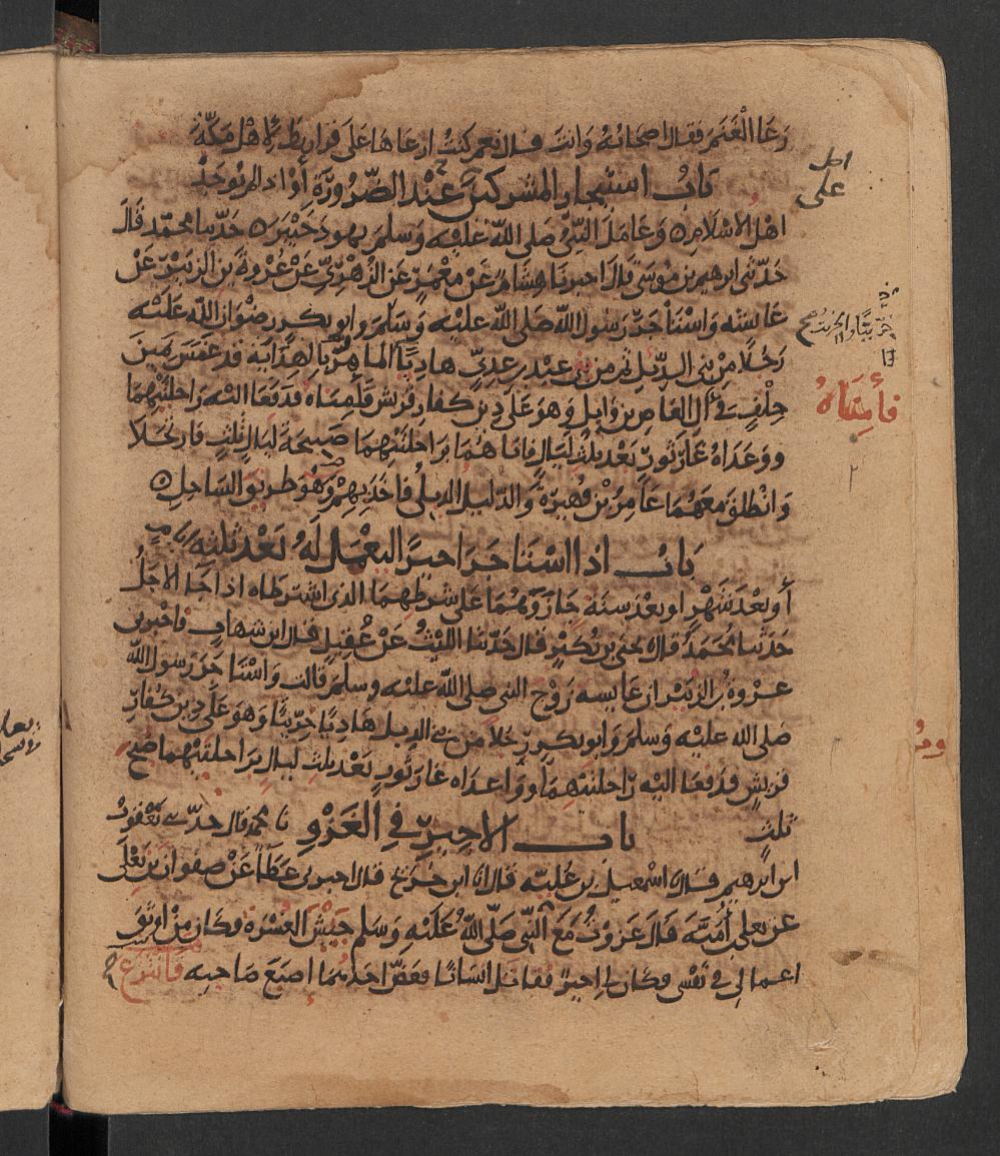 رَعَا الْغَنَمَ فقال اصحابُهُ وَانتَ فقال نعم كنتُ ارعاها عَلَى قراريط لاهل مَكّةَ
بَابُ استيجار المشركين عِنْد الضّرُورَةِ أوْ اذا لم يُوجَدْ
اهلُ الاسْلَامِ ه وَعَامَلَ النَّبِيُّ صَلى اللهُ عليه وَسلم يهودَ خَيْبَرَ ه حَدّثنا محمّد قالَ
حَدّثني ابرهيم بن موسَى قال اخبرنا هِشَامٌ عَنْ مَعْمَرٍ عَنِ الزُّهْرِيِّ عَنْ عُرْوَةَ بن الزبَيْر عَنْ
عَايشه وَاسْتَاجَرَ رَسُولُ اللهِ صَلى اللهُ عليْه وَسَلمَ وابو بكر رضوَان اللهِ عَلَيْه
رَجُلًا مِنْ بني الدِّيْلِ ثم من بني عَبْد بن عدِيٍّ هادِيًا الماهِرُ بالهِدَايَةِ قد غمَسَ يَمينَ
حِلْفٍ في آل العَاصِ بن وَايل وَهوَ عَلَى دِين كفارِ قُرَيْشٍ فَأَمِنَاهُ فَدَفَعَا اليْه رَاحلتَيْهِمَا
ووَعَدَاهُ غَارَ ثَورٍ بَعْد ثلث لَيَالٍ فاتاهُمَا بِرَاحلتَيْهِمَا صَبِيحَةَ ليَالٍ ثلثٍ فارتحَلا
وَانْطلق مَعَهُمَا عَامِرُ بْنُ فُهَيرَةَ وَالدَّليلُ الدِّيلي فاخَذ بِهِمْ وَهُوَ طريق السَاحِلِ ه
بَابُ اذا اسْتَاجَرَ اجيرًا ليَعْمَلَ لَهُ بَعْدَ ثلثه ايام
أو بعْدَ شَهْرٍ او بعْدَ سنَة جَازَ وَهُمَا عَلى شرْطِهِمَا الذي اشتَرَطَاه اذا جَا الاجَلُ
حَدّثنا مُحَمَدٌ قال يحيى بن بُكَيْرٍ قال حَدّثنا الليْثُ عَنْ عُقيلٍ قال ابن شهَابٍ فاخبرني
عُروَةُ بن الزبَيْر ان عايشه زَوْج النبي صَلى اللهُ عليْه وسلمَ قالت وَاسْتَاجَرَ رَسول اللهِ
صَلى الله عليْه وَسلم وَابو بكر رَجُلًا من بني الدِيل هَادِيًا خِرِّيتًا وَهوَ عَلى دِين كُفارِ
قريْشٍ فَدفعَا اليْهِ رَاحلتيْهِمَا ووَاعَدَاه غارَ ثورٍ بَعْد ثلث ليالٍ بِرَاحلتَيْهِما صُبحَ
ثلثٍ بَابُ الاجيرِ فِي الغَزْوِ نا محمّد قال حدّثني يَعْقوبُ
ابن ابرهيم قال نا اسْمعيل بن عُليّه قال انا ابن جُرَيْج قال اخبرني عَطَا عَنْ صفوان بن يَعْلَى
عن يعلى بن أُمَيَّةَ قَالَ غَزَوْتُ مَعَ النَّبِي صَلَّى اللهُ عَلَيْهِ وَسَلم جَيْشَ العُسْرَةِ فكان مِنْ اوثق
اعمالي في نَفْسي فكان لي اجيرٌ فقاتل انسَانًا فعَضّ احَدُهُمَا اصبَعَ صَاحِبِه فَانْتَزع
على
فأَمِنَاهُ